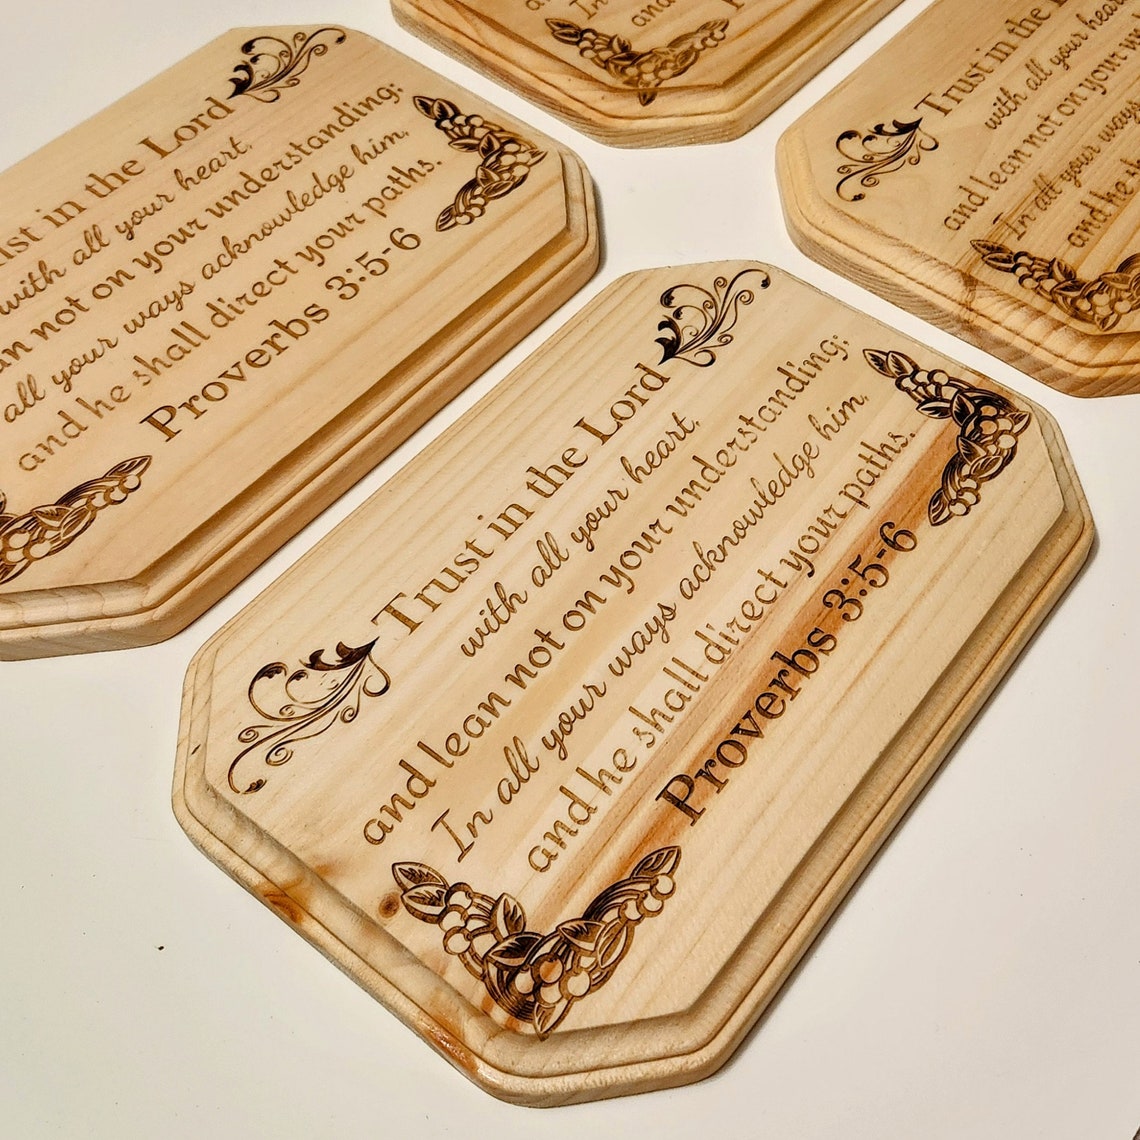 Trust in the Lord
with all your heart,
and lean not on your understanding;
In all your ways acknowledge him,
and he shall direct your paths.
Proverbs 3:5-6
in the Lord
with all your heart,
not on your understanding;
all your ways acknowledge him,
and he shall direct your paths.
Proverbs 3:5-6
In
and
Trust in the
with all your heart
and lean not on your
In all your ways
and he